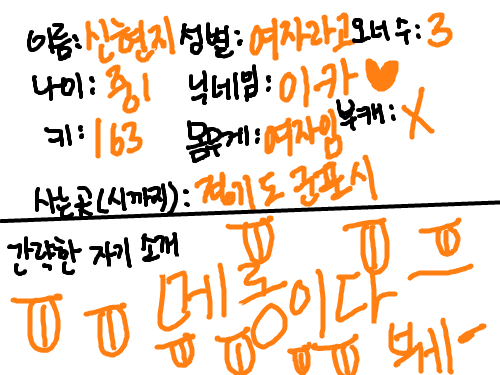 이름: 신현지 성별: 여자라고 오너 수: 3
나이: 중1 닉네임: 이카♥
키: 163 몸무게: 여자임 부캐: X
사는곳(시까지): 경기도 군포시
간략한 자기 소개
메롱이다